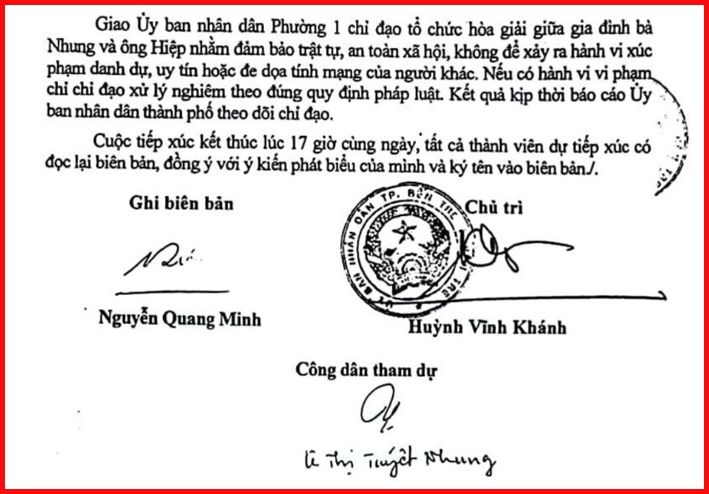 Giao Ủy ban nhân dân Phường 1 chỉ đạo tổ chức hòa giải giữa gia đình bà
Nhung và ông Hiệp nhằm đảm bảo trật tự, an toàn xã hội, không để xảy ra hành vi xúc
phạm danh dự, uy tín hoặc đe dọa tính mạng của người khác. Nếu có hành vi vi phạm
chỉ chỉ đạo xử lý nghiêm theo đúng quy định pháp luật. Kết quả kịp thời báo cáo Ủy
ban nhân dân thành phố theo dõi chỉ đạo.
Cuộc tiếp xúc kết thúc lúc 17 giờ cùng ngày, tất cả thành viên dự tiếp xúc có
đọc lại biên bản, đồng ý với ý kiến phát biểu của mình và ký tên vào biên bản./.
Ghi biên bản
Chủ trì
ỦY BAN NHÂN DÂN TP. BẾN TRE
Nguyễn Quang Minh
Huỳnh Vĩnh Khánh
Công dân tham dự
Lê Thị Tuyết Nhung